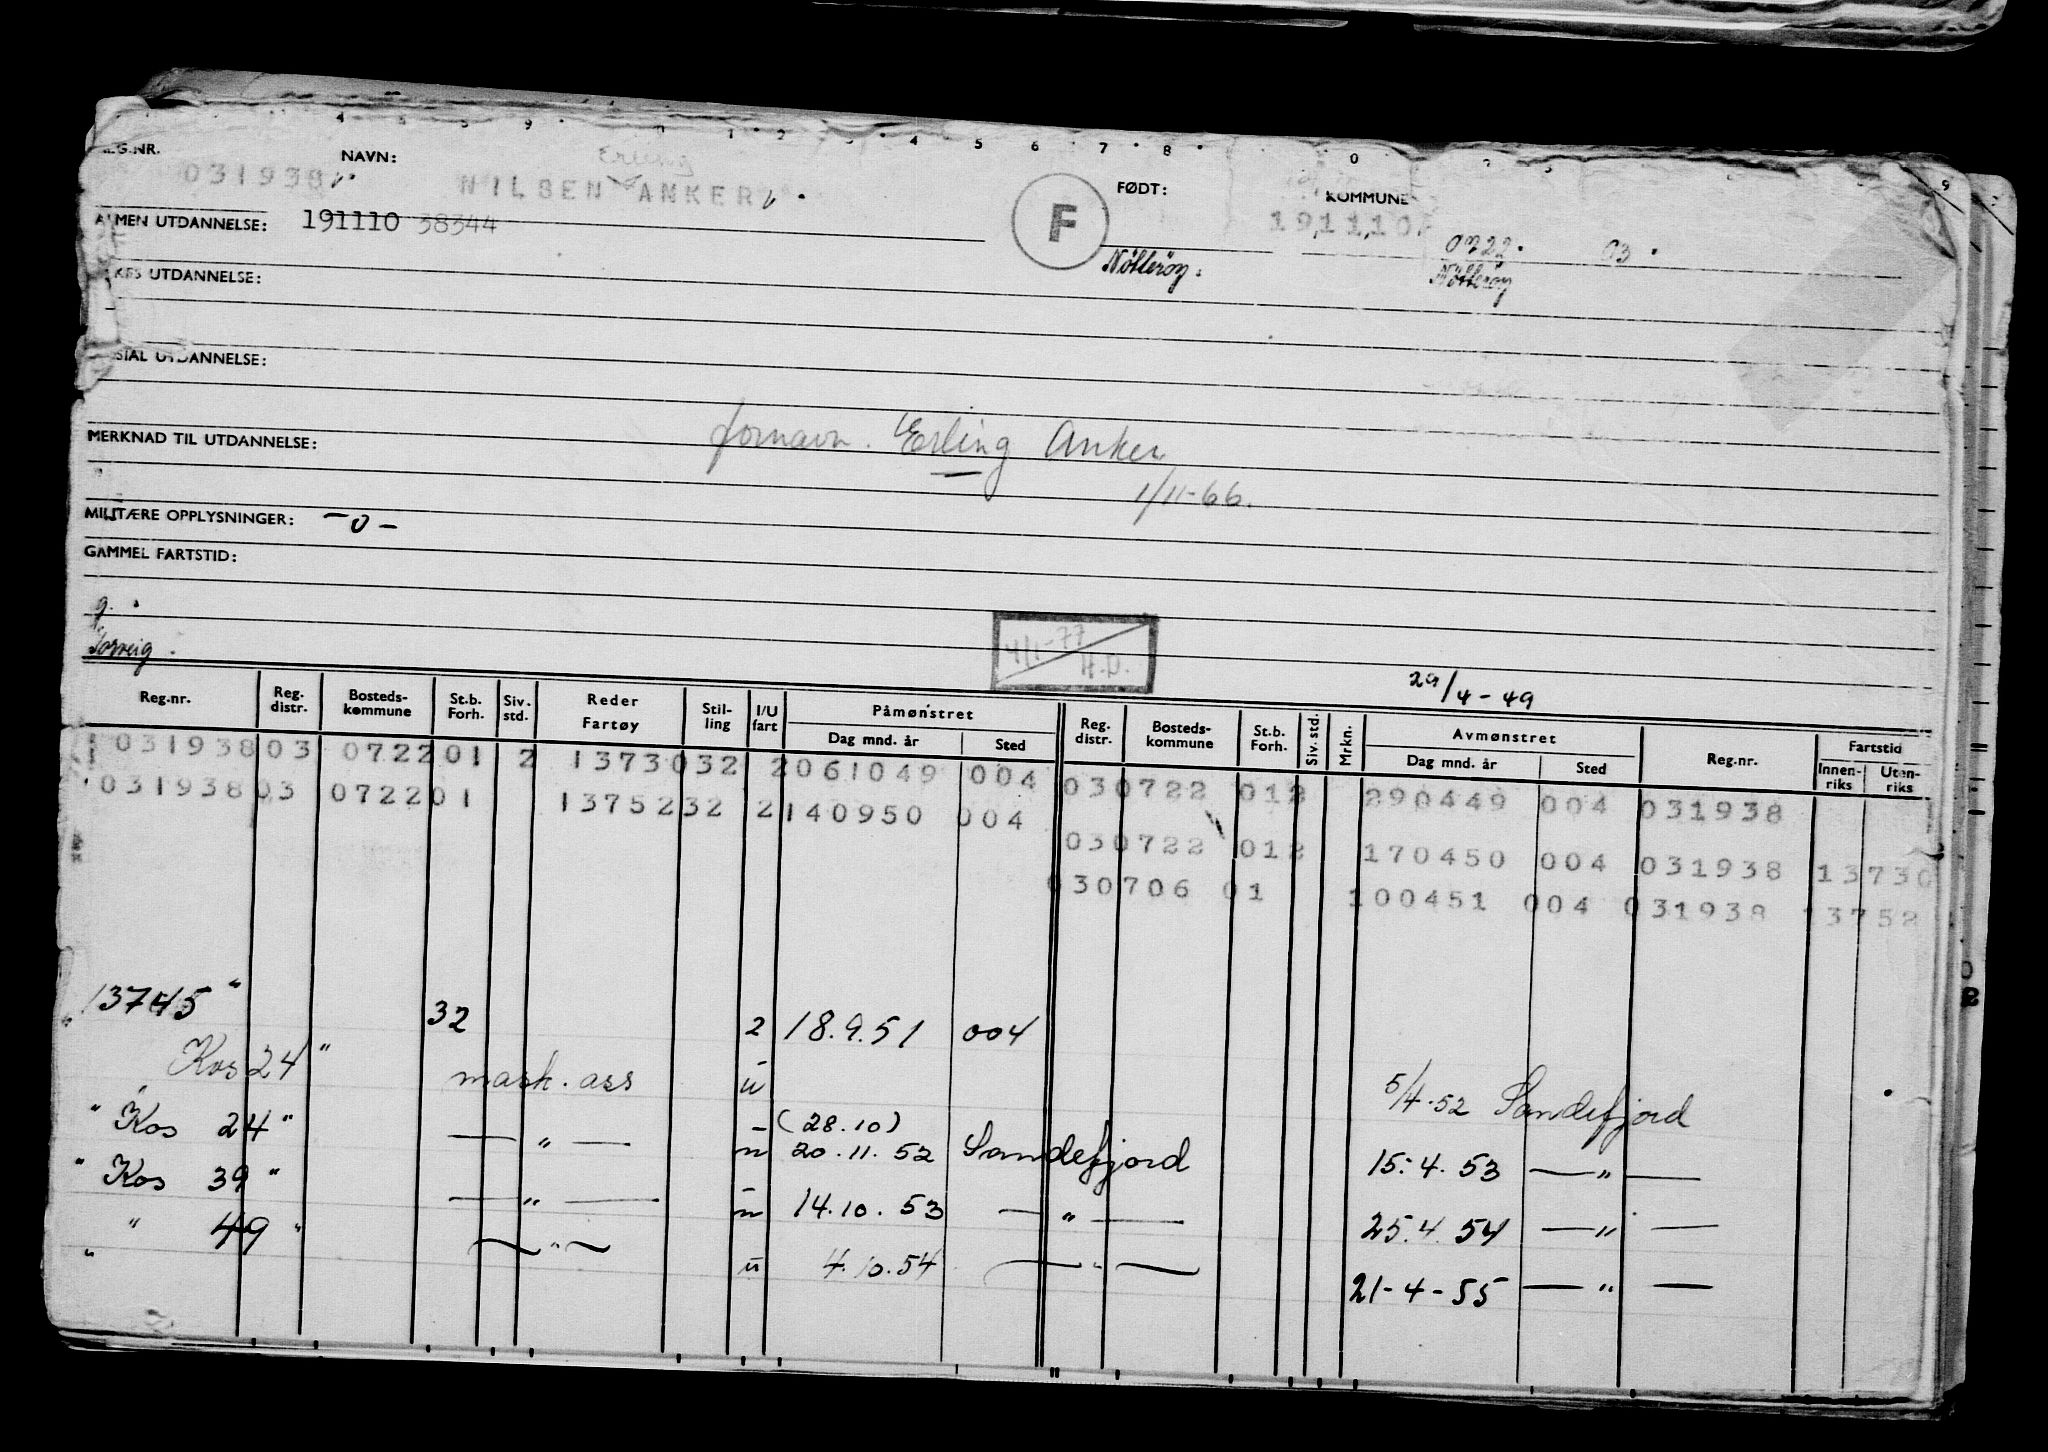 REG.NR. NAVN: Erling FØDT: KOMMUNE
031938 NILSEN ANKER F 191110
ALMEN UTDANNELSE: 191110 38344 0722. 03.
Nötteröy. Nötteröy
UTDANNELSE:
UTDANNELSE:
MERKNAD TIL UTDANNELSE: fornavn. Erling Anker
1/11-66.
MILITÆRE OPPLYSNINGER: -o-
GAMMEL FARTSTID:
g.
4/1-77
H.D.
29/4-49
Reg.nr. Reg. distr. Bosteds-kommune St.b. Forh. Siv. std. Reder Fartøy Stil-ling I/U fart Påmønstret Dag mnd. år Sted Reg. distr. Bosteds-kommune St.b. Forh. Siv. std. Mrkn. Avmønstret Dag mnd. år Sted Reg.nr. Fartstid Innen-riks Uten-riks
031938 03 0722 01 2 13730 32 2 061049 004 03 0722 01 2 290449 004 031938
031938 03 0722 01 13752 32 2 140950 004 03 0722 01 2 170450 004 031938 13730
03 0706 01 100451 004 031938 13752
13745 " 32 2 18.9.51 004
Kos 24 " mask. ass u 5/4.52 Sandefjord
" Kos 24 " — " — u (28.10) 20.11.52 Sandefjord 15.4.53 — " —
" Kos 39 " — " — u 14.10.53 — " — 25.4.54 — " —
" " 49 " — " — u 4.10.54 — " — 21-4-55 — " —